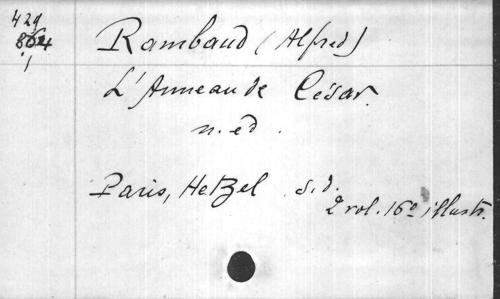 429
864
1
Rambaud (Alfred)
L'Anneau de César.
n. ed.
Paris, Hetzel s.d.
2 vol. 16º illustr.